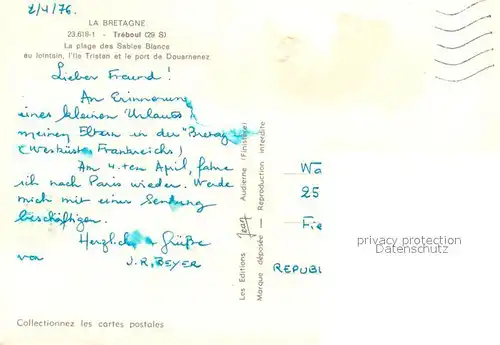 2/4/76.
LA BRETAGNE
23.618-1 - Tréboul (29 S)
La plage des Sables Blancs
au lointain, l'Ile Tristan et le port de Douarnenez
Lieber Freund !
An Erinnerung
eines kleinen Urlaubs
meinen Eltern in der "Bretagne"
(Westküste Frankreichs)
Am 4.ten April, fahre
ich nach Paris wieder. Werde
mich mit einer Sendung
beschäftigen.
Herzliche Grüße
von J.R. BEYER
Collectionnez les cartes postales
Les Editions Jean Audierne (Finistère)
Marque déposée - Reproduction interdite
Wa
25
Fie
REPUBL
privacy protection
Datenschutz